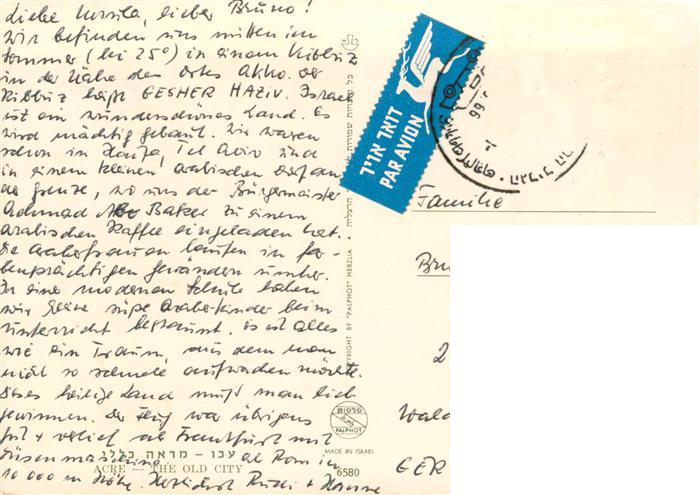 Liebe Ursula, lieber Bruno!
Wir befinden uns mitten im
Sommer (bei 25°) in einem Kibbuz
in der Nähe des Ortes Akko. Der
Kibbuz heißt GESHER HAZIV. Israel
ist ein wunderschönes Land. Es
wird mächtig gebaut. Wir waren
schon in Haifa, Tel Aviv und
in einem kleinen arabischen Dorf an
der Grenze, wo uns der Bürgermeister
Achmad Abu Baker zu einem
arabischen Kaffee eingeladen hat.
Die Araberfrauen laufen in far-
benprächtigen Gewändern umher.
In einer modernen Schule haben
wir kleine süße Araberkinder beim
Unterricht bestaunt. Es ist alles
wie ein Traum, aus dem man
nicht so schnell aufwachen möchte.
Dieses heilige Land muß man lieb-
gewinnen. Der Flug war übrigens
gut + verlief ab Frankfurt mit
Düsenmaschine ab Rom in
10 000 m Höhe. Herzlichst Rudi + Hanne
עכו - מראה כללי
ACRE — THE OLD CITY
6580
MADE IN ISRAEL
פלפוט
PALPHOT
COPYRIGHT BY "PALPHOT" HERZLIA
דואר אויר
PAR AVION
Familie
GER